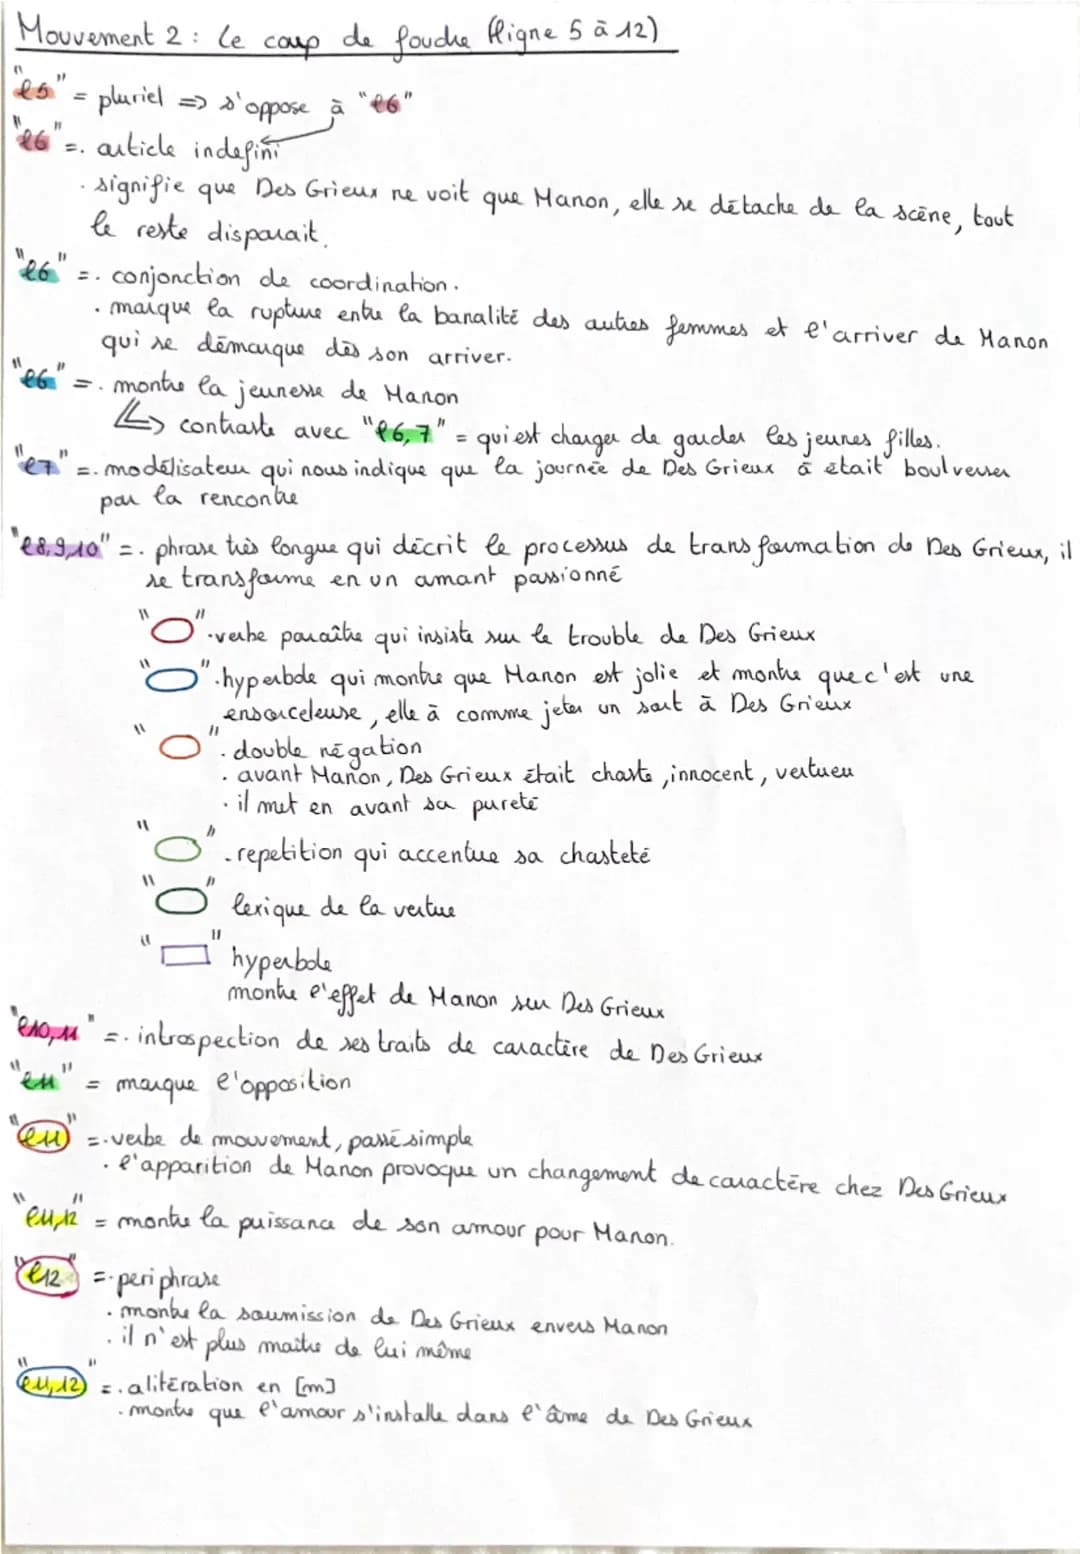 Mouvement 2 : le coup de foudre (ligne 5 à 12)
"l5" = pluriel => s'oppose à "l6"
"l6" =. article indefini
. signifie que Des Grieux ne voit que Manon, elle se détache de la scène, tout
le reste disparait.
"l6" =. conjonction de coordination.
. marque la rupture entre la banalité des autres femmes et l'arriver de Manon
qui se démarque dès son arriver.
"l6" =. montre la jeunesse de Manon
↳ contraste avec "l6,7" = qui est charger de garder les jeunes filles.
"l7" =. modélisateur qui nous indique que la journée de Des Grieux à était boulverser
par la rencontre
"l8,9,10" =. phrase très longue qui décrit le processus de transformation de Des Grieux, il
se transforme en un amant passionné
" " .verbe paraître qui insiste sur le trouble de Des Grieux
" " .hyperbole qui montre que Manon est jolie et montre que c'est une
ensorceleuse, elle à comme jeter un sort à Des Grieux
" " . double négation
. avant Manon, Des Grieux était chaste, innocent, vertueu
. il met en avant sa pureté
" " . repetition qui accentue sa chasteté
" " lexique de la vertue
" " hyperbole
montre l'effet de Manon sur Des Grieux
"l10,11" =. introspection de ses traits de caractère de Des Grieux
"l11" = marque l'opposition
"l11" =. verbe de mouvement, passé simple
. l'apparition de Manon provoque un changement de caractère chez Des Grieux
"l11,12" = montre la puissance de son amour pour Manon.
"l12" =. periphrase
. montre la soumission de Des Grieux envers Manon
. il n'est plus maître de lui même
"l11,12" =. alitération en [m]
. montre que l'amour s'installe dans l'âme de Des Grieux